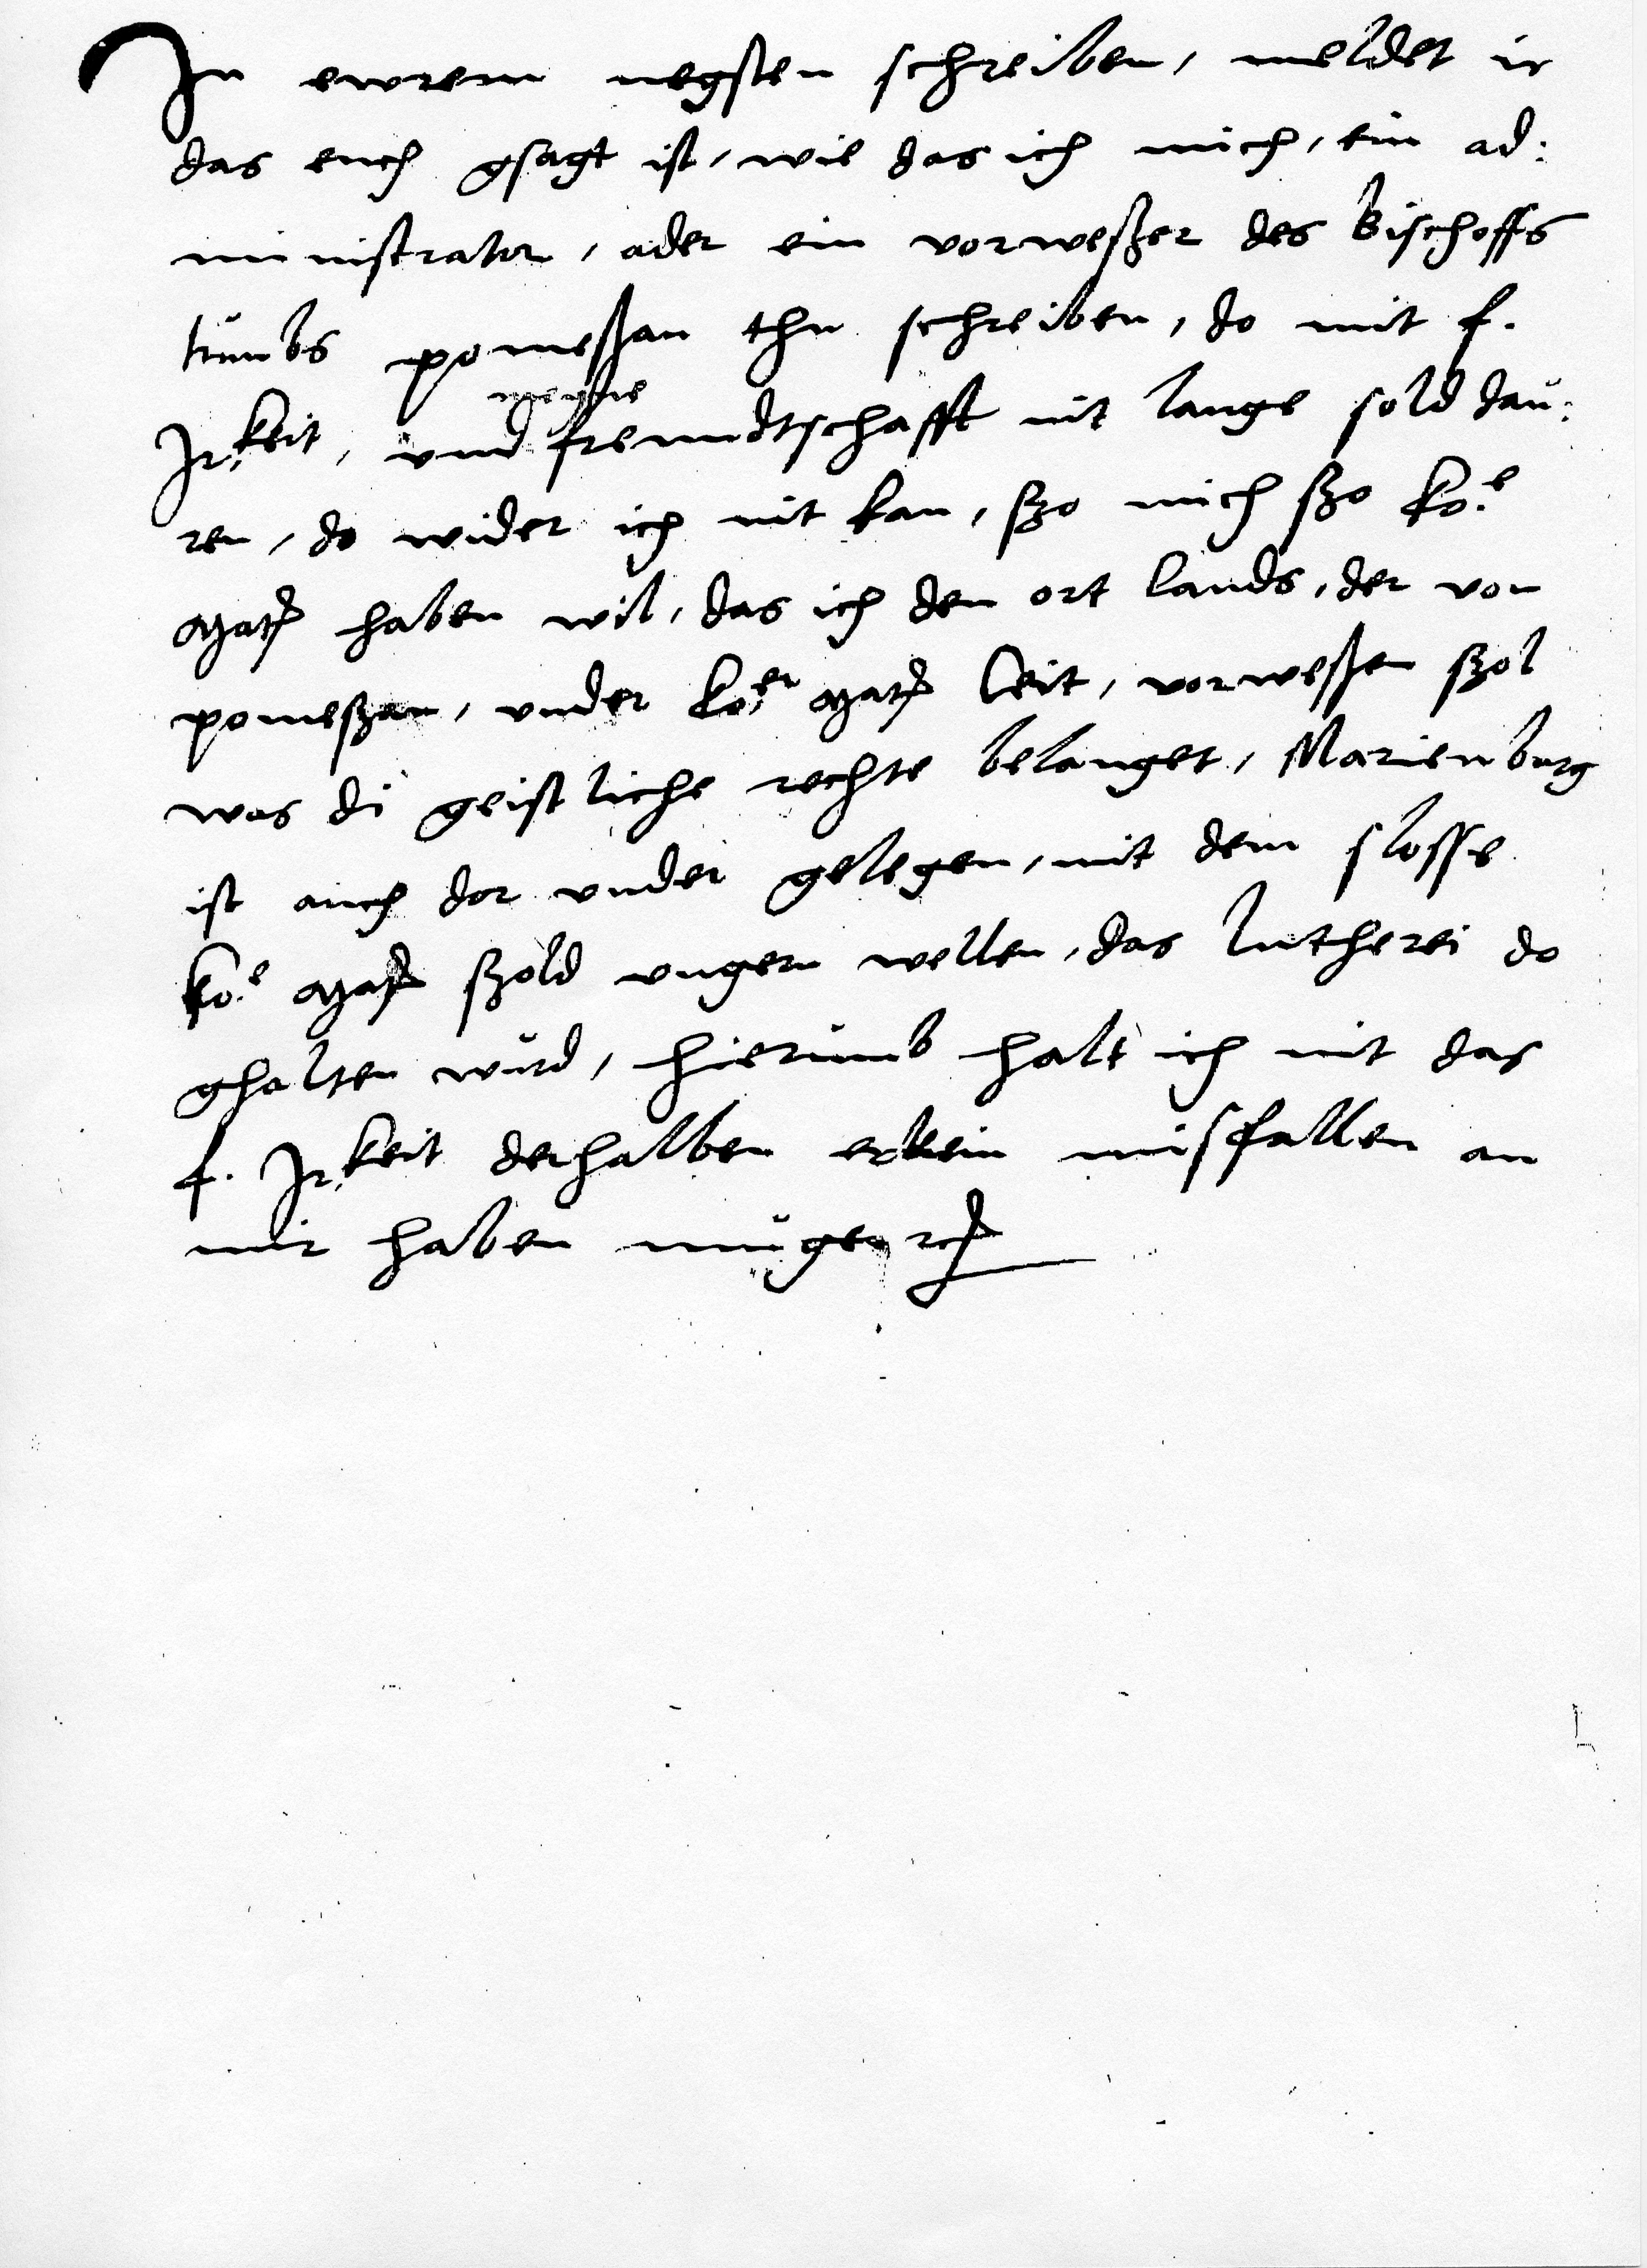 In ewrem negsten schreiben, meldet ir
das euch gsagt ist, wie das ich mich, ein ad:
ministrator, ader ein vorweßer des bischoffs
tumbs pomeßan thu schreiben, do mit f.
Irkeit, und freundtschafft nit lange sold dau:
ren, do wider ich nit kan, szo mich szo ko.e
Matt haben wil, das ich den ort lands, der von
pomeszan, under ko.er Matt leit, vorweßen szol
was di geistliche rechte belanget, Marienburg
ist auch dor under gelegen, mit dem slosse
ko.e Matt szold ungern wellen, das lutherei do
ghalten wurd, hierumb halt ich nit das
f. Irkeit derhalben erkein misfallen an
mir haben muge rc